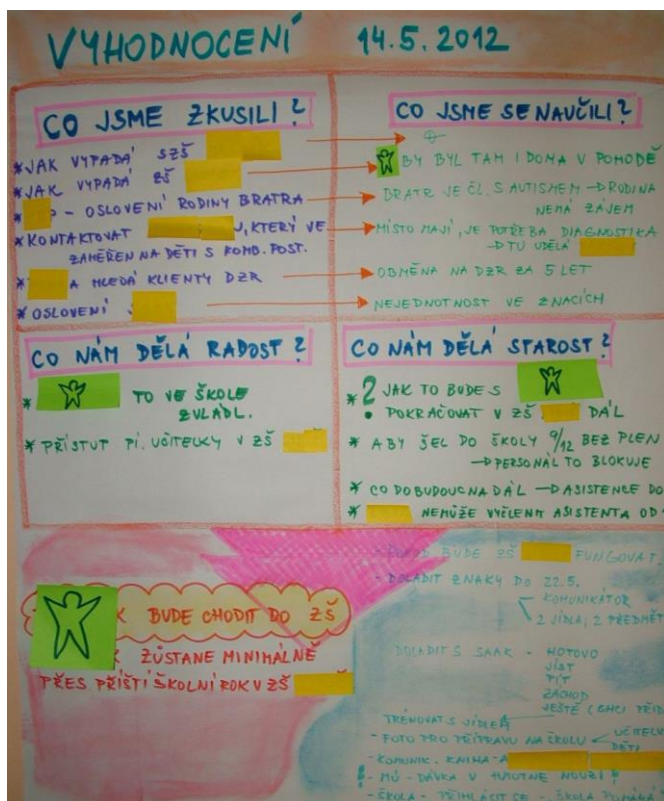 VYHODNOCENÍ 14.5.2012
CO JSME ZKUSILI?
*JAK VYPADÁ SZŠ
*JAK VYPADÁ ZŠ
* - OSLOVENÍ RODINY BRATRA
*KONTAKTOVAT , KTERÝ JE
ZAMĚŘEN NA DĚTI S KOMB. POST.
* A HLEDÁ KLIENTY DZR
*OSLOVENÍ
CO JSME SE NAUČILI?
BY BYL TAM I DOMA V POHODĚ
BRATR JE ČL. S AUTISMEM → RODINA
NEMÁ ZÁJEM
MÍSTO MAJÍ, JE POTŘEBA DIAGNOSTIKA
→ TU UDĚLÁ
OBMĚNA NA DZR ZA 5 LET
NEJEDNOTNOST VE ZNACÍCH
CO NÁM DĚLÁ RADOST?
* TO VE ŠKOLE
ZVLÁDL.
* PŘÍSTUP PÍ. UČITELKY V ZŠ
CO NÁM DĚLÁ STAROST?
*? JAK TO BUDE S
POKRAČOVAT V ZŠ DÁL
* ABY ŠEL DO ŠKOLY 9/12 BEZ PLEN
→ PERSONÁL TO BLOKUJE
* CO DO BUDOUCNA DÁL → ASISTENCE DO
* NEMŮŽE VYČLENIT ASISTENTA OD
K BUDE CHODIT DO ZŠ
K ZŮSTANE MINIMÁLNĚ
PŘES PŘÍŠTÍ ŠKOLNÍ ROK V ZŠ
BUDE ZŠ FUNGOVAT
- DOLADIT ZNAKY DO 22.5.
KOMUNIKÁTOR
2 JÍDLA, 2 PŘEDMĚT
DOLADIT S SAAK - HOTOVO
JÍST
PÍT
ZÁCHOD
JEŠTĚ (CHCI PŘID
TRÉNOVAT S JÍDLEM
- FOTO PRO PŘÍPRAVU NA ŠKOLU UČITELK
DĚTI
- KOMUNIK. KNIHA - A
- MÚ - DÁVKA V HMOTNÉ NOUZI!
- ŠKOLA - PŘIHLÁSIT SE - ŠKOLA